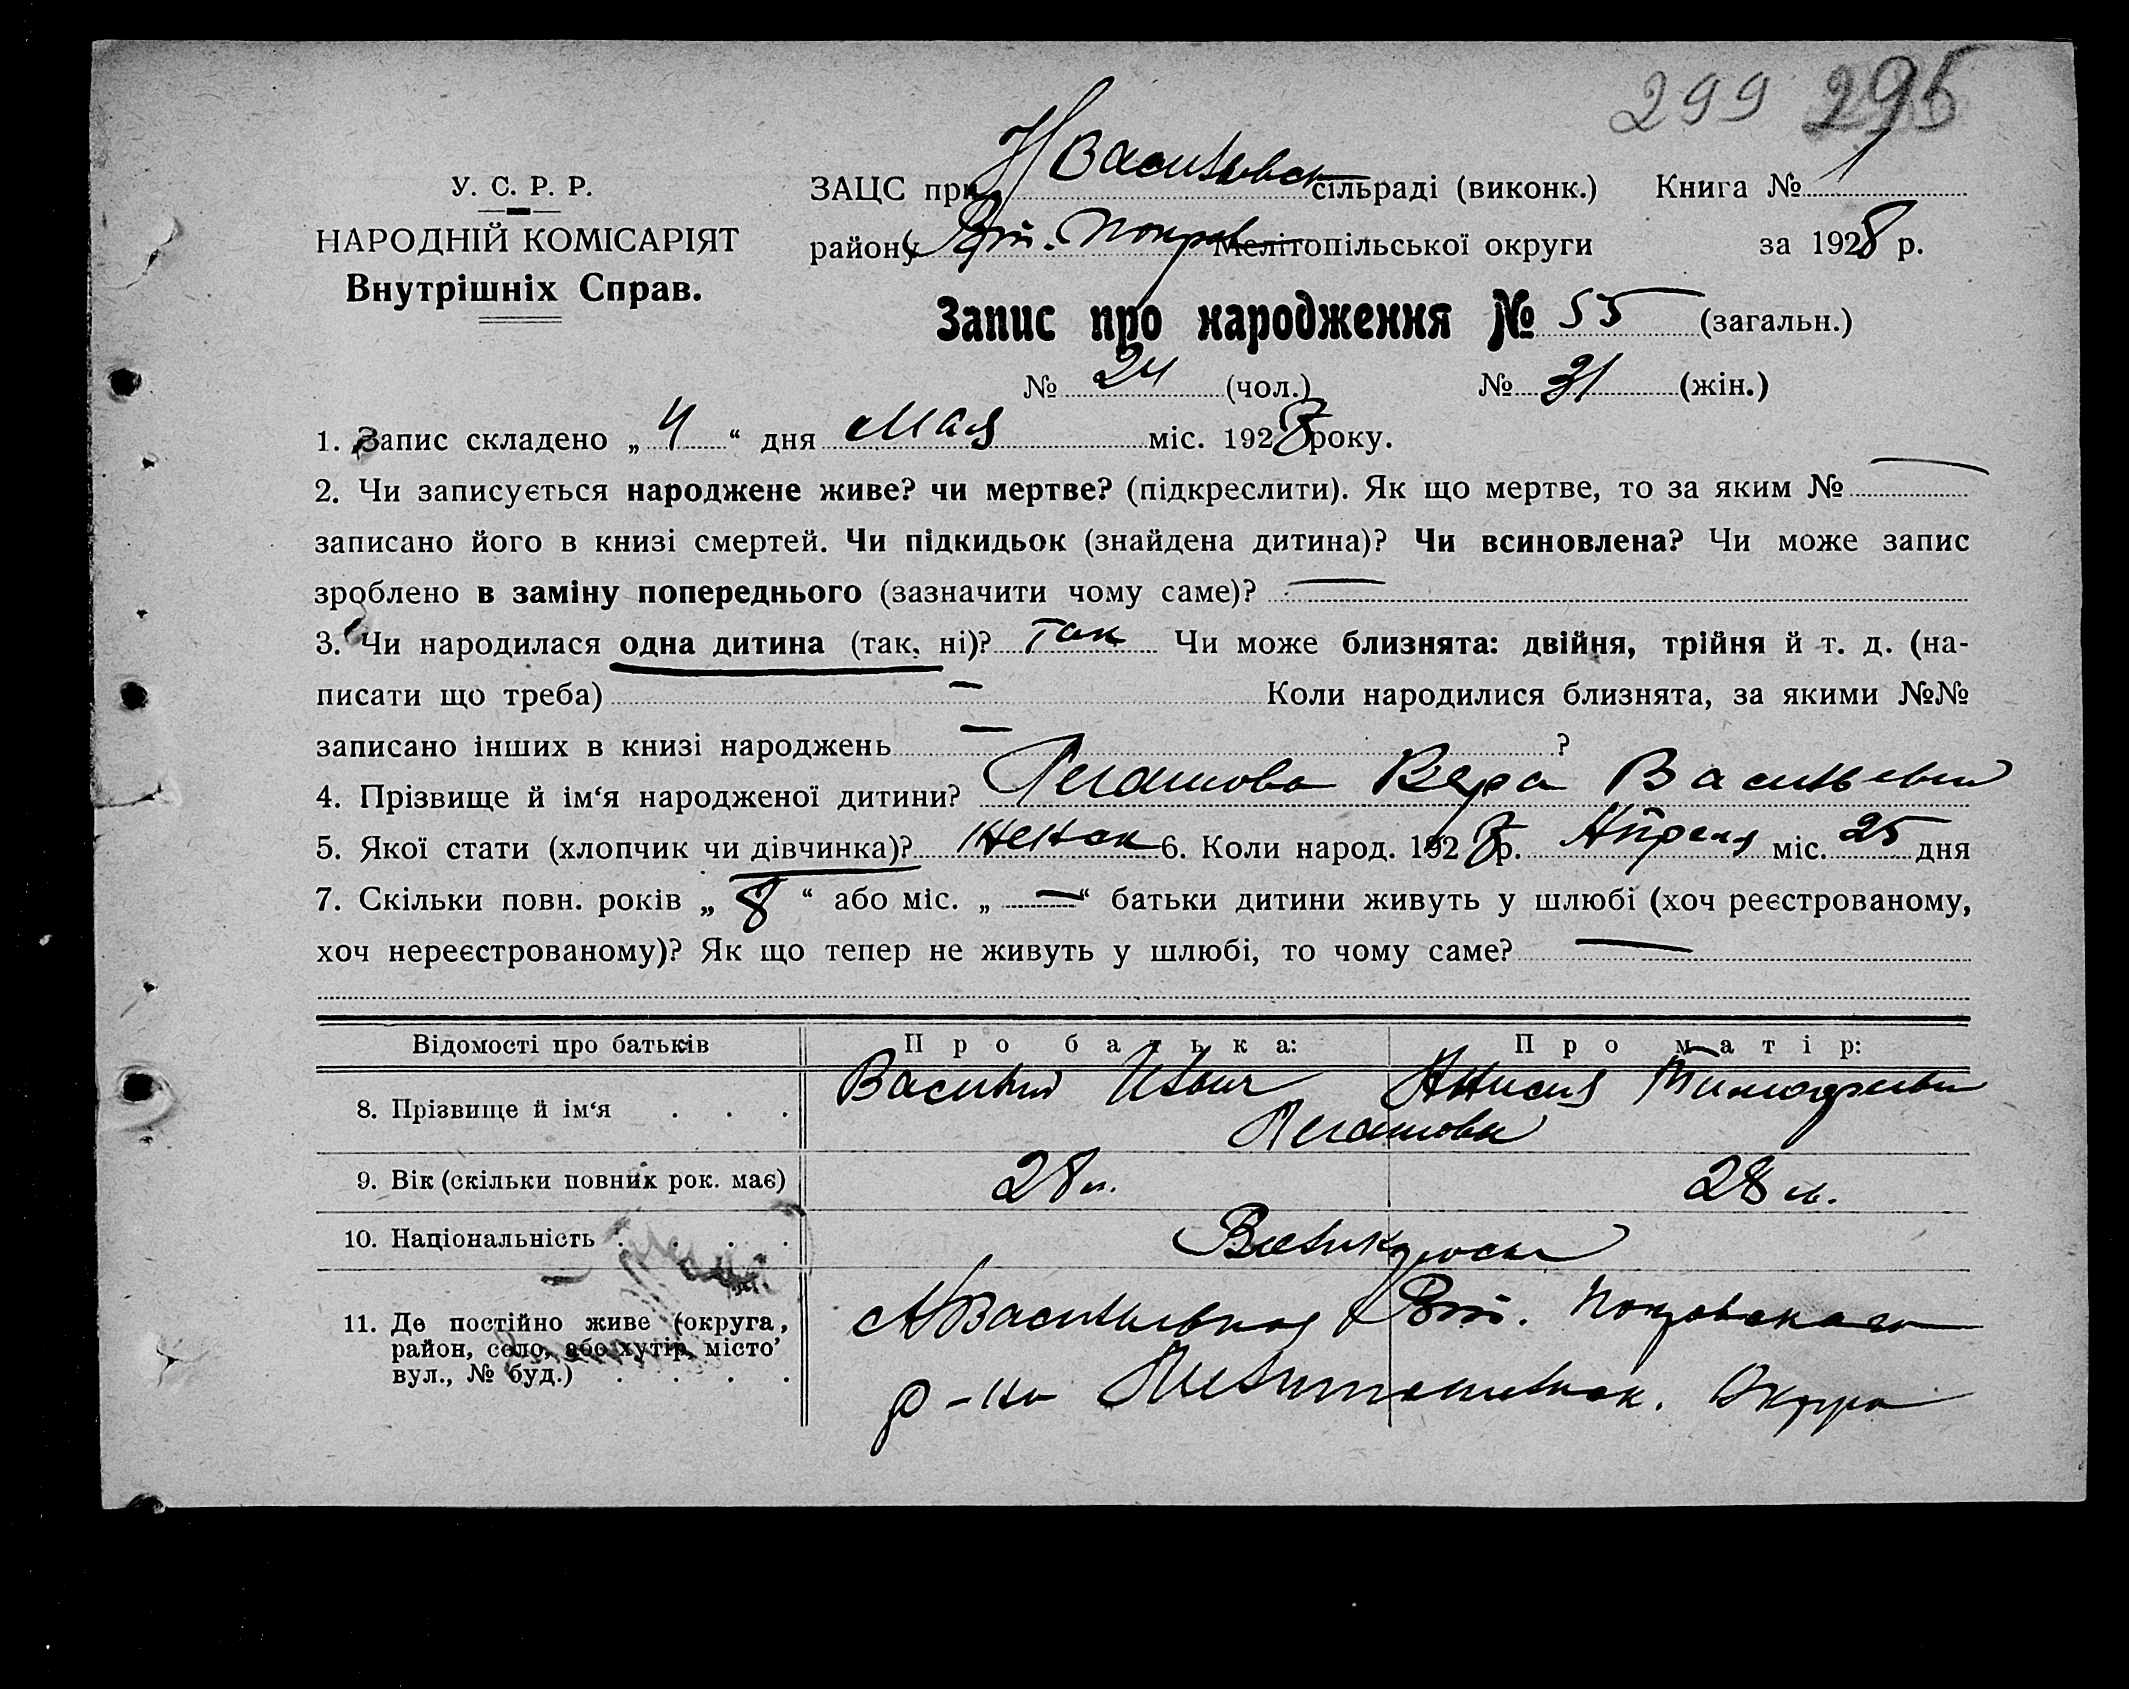 299 295
У. С. Р. Р.
НАРОДНІЙ КОМІСАРІЯТ
Внутрішніх Справ.
ЗАЦС при Н Васильевск сільраді (виконк.) Книга № 1
району Вт. Покров Мелітопільської округи за 1928 р.
Запис про народження № 55 (загальн.)
№ 24 (чол.) № 31 (жін.)
1. Запис складено „ 4 “ дня Мая міс. 1928 року.
2. Чи записується народжене живе? чи мертве? (підкреслити). Як що мертве, то за яким № —
записано його в книзі смертей. Чи підкидьок (знайдена дитина)? Чи всиновлена? Чи може запис
зроблено в заміну попереднього (зазначити чому саме)? —
3. Чи народилася одна дитина (так, ні)? Так Чи може близнята: двійня, трійня й т. д. (на-
писати що треба) — Коли народилися близнята, за якими №№
записано інших в книзі народжень — ?
4. Прізвище й ім‘я народженої дитини? Вера Васильевна
5. Якої стати (хлопчик чи дівчинка)? Женск 6. Коли народ. 1928 р. Апреля міс. 25 дня
7. Скільки повн. років „ 8 “ або міс. „ — “ батьки дитини живуть у шлюбі (хоч реєстрованому,
хоч нереєстрованому)? Як що тепер не живуть у шлюбі, то чому саме? —
Відомості про батьків Про батька: Про матір:
8. Прізвище й ім‘я . . . Василий Иван Анисия Тимофеевна
9. Вік (скільки повних рок. має) 28 л. 28 л.
10. Національність . . . . Великросы
11. Де постійно живе (округа, Н Васильевка Вт. Покровскаго
район, село, або хутір, місто’
вул., № буд.) . . . . р-на Мелитопольск. Округа